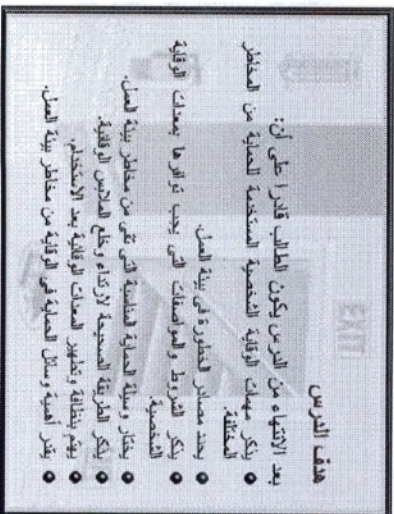 EXIT
هدف الدرس
بعد الانتهاء من الدرس يكون الطالب قادرا على أن:
يذكر مهمات الوقاية الشخصية المستخدمة للحماية من المخاطر
المختلفة.
يحدد مصادر الخطورة في بيئة العمل.
يذكر الشروط والمواصفات التي يجب توافرها بمعدات الوقاية
الشخصية.
يختار وسيلة الحماية المناسبة التي تقي من مخاطر بيئة العمل.
يذكر الطريقة الصحيحة لارتداء وخلع الملابس الوقائية.
يهتم بنظافة وتطهير المعدات الوقائية بعد الاستخدام.
يقدر أهمية وسائل الحماية في الوقاية من مخاطر بيئة العمل.